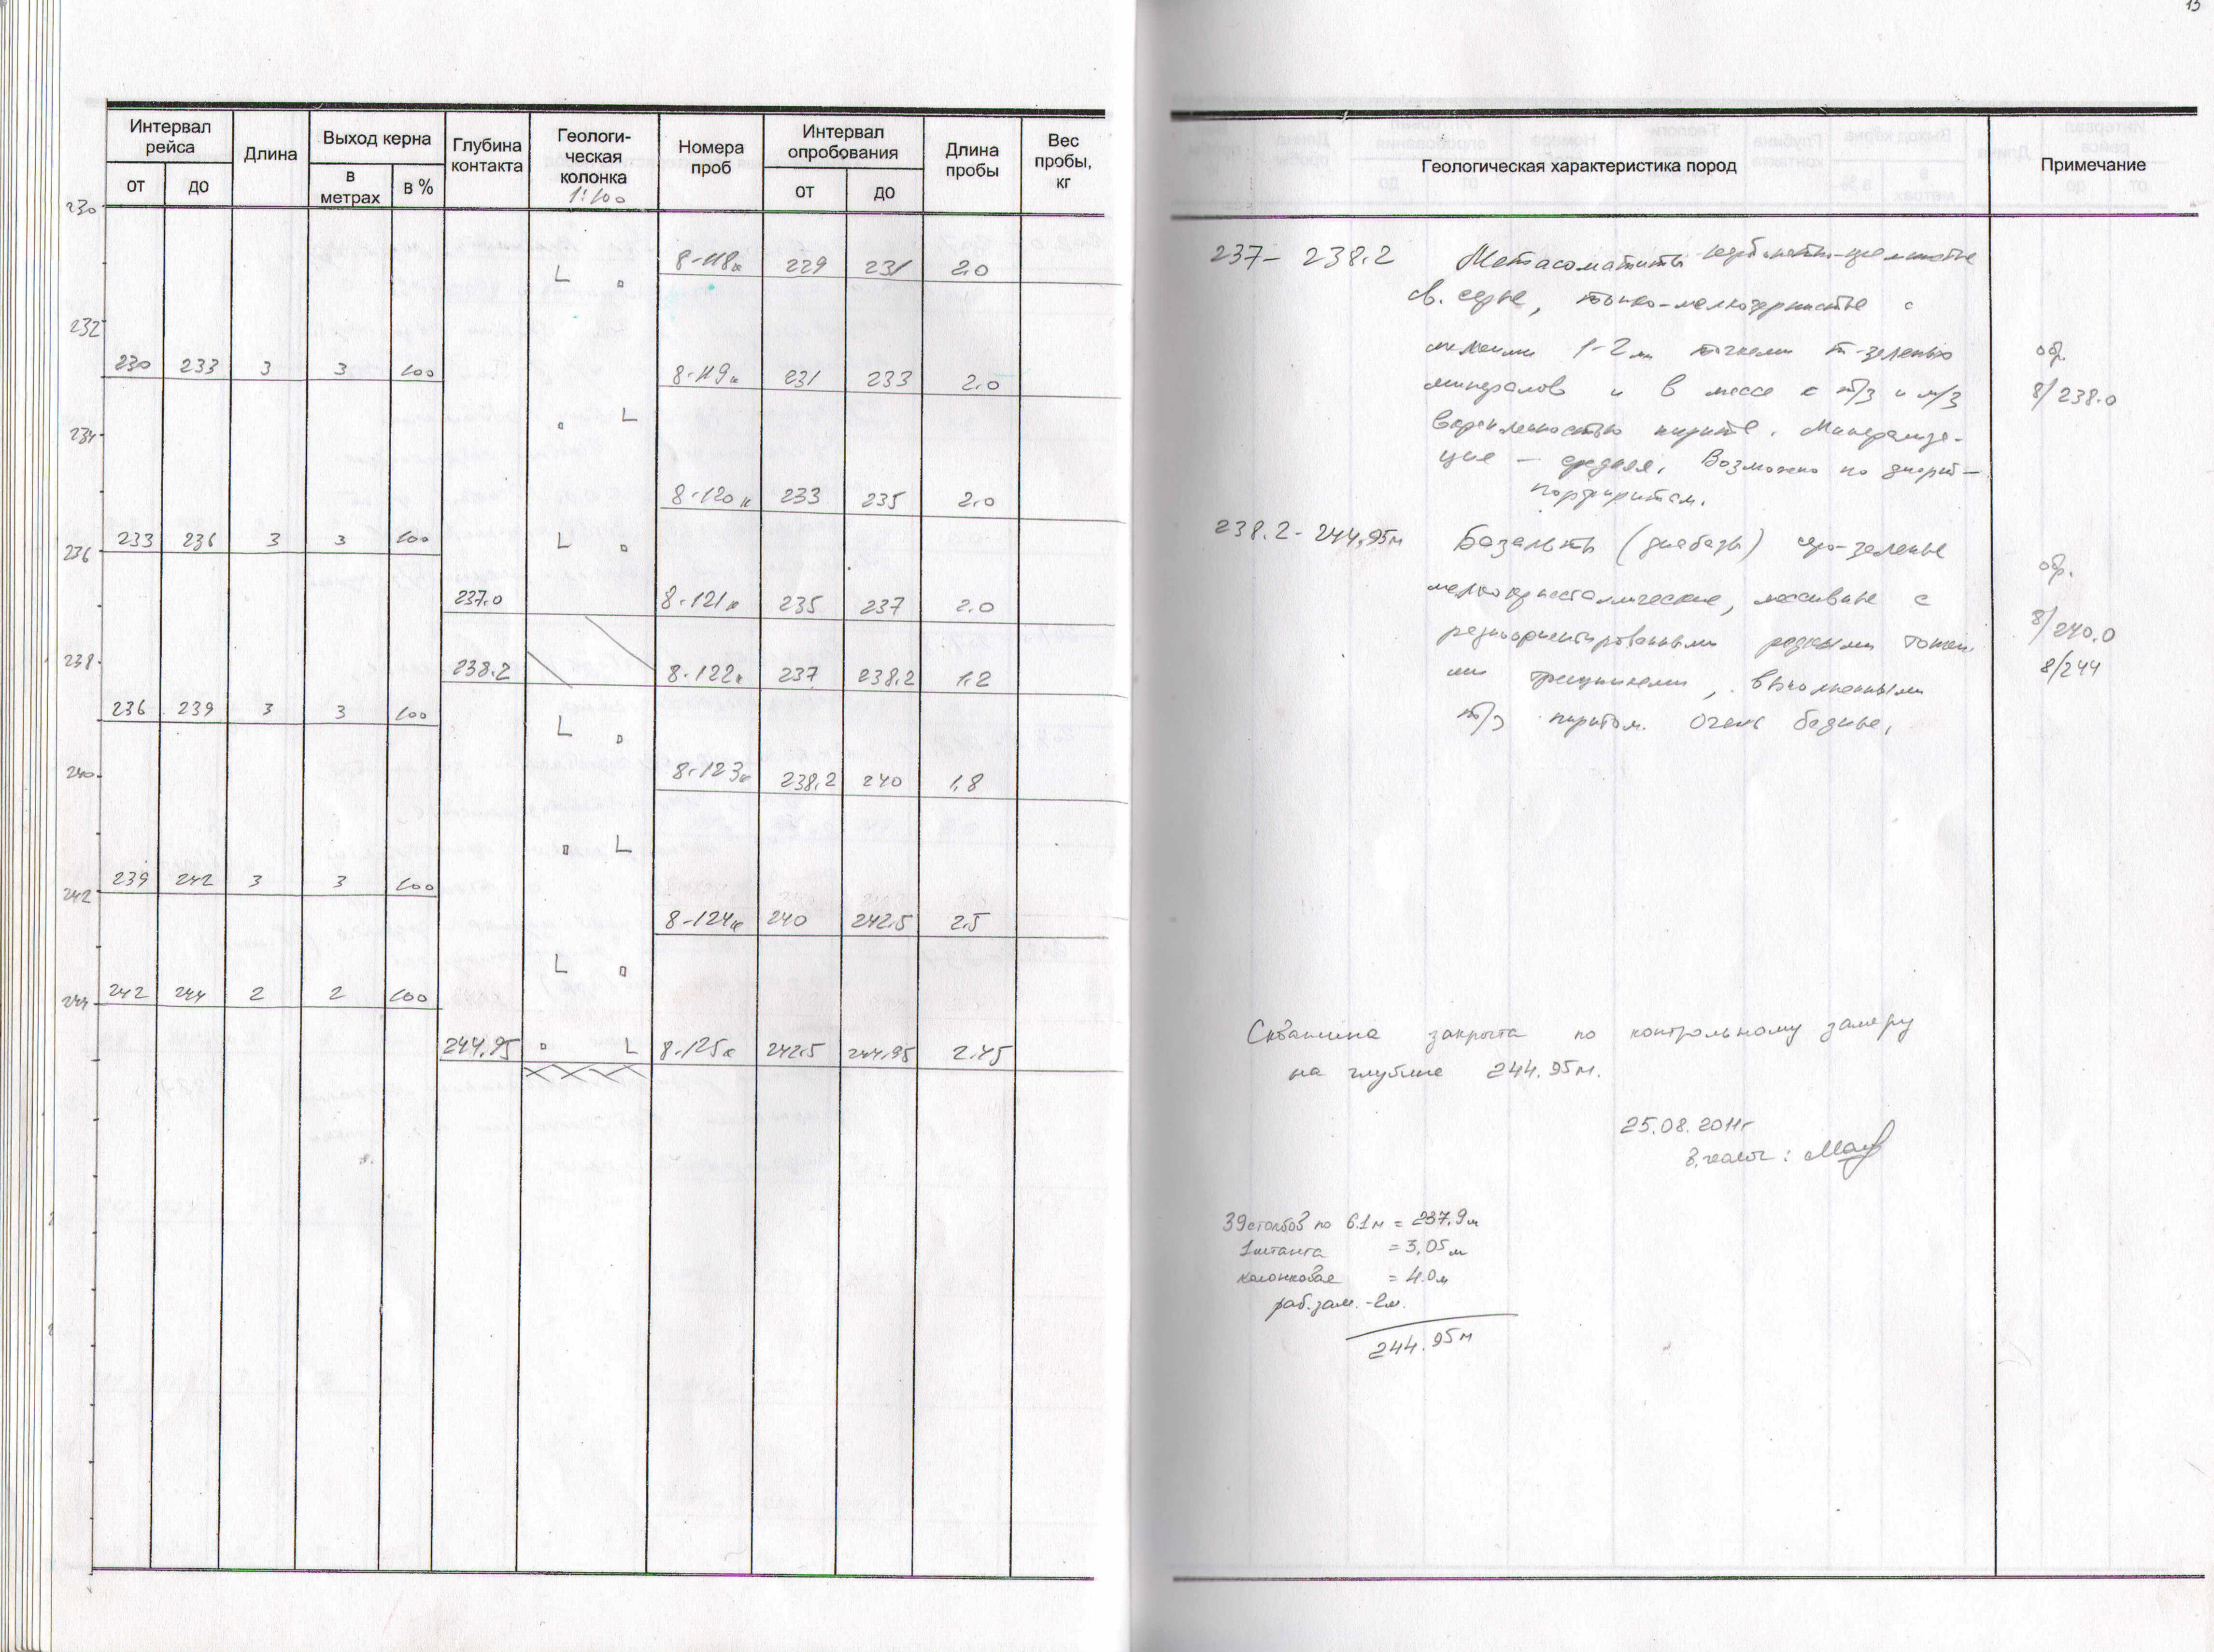 15
Интервал рейса
Длина
Выход керна
Глубина контакта
Геологи-ческая колонка
1:100
Номера проб
Интервал опробования
Длина пробы
Вес пробы, кг
от до в метрах в % от до
230
8-118к 229 231 2.0
232
230 233 3 3 100 8-119к 231 233 2.0
234
8-120к 233 235 2.0
236 233 236 3 3 100
237.0 8-121к 235 237 2.0
238 238.2 8-122к 237 238.2 1.2
236 239 3 3 100
240 8-123к 238.2 240 1,8
242 239 242 3 3 100
8-124к 240 242.5 2.5
244 242 244 2 2 100
244.95 8-125к 242.5 244.95 2.45
Геологическая характеристика пород
Примечание
237- 238.2 Метасоматиты
св. серые, тонко-мелкозернистые с
мелкими 1-2мм точками т-зеленых
обр.
минералов и в массе с т/з и м/з
8/238.0
вкрапленностью пирита. Минерализа-
ция - средняя. Возможно по диорит-
порфиритам.
238.2-244.95м Базальты (диабазы) серо-зеленые
обр.
мелкокристаллические, массивные с
8/240.0
разноориентированными редкими тонки-
ми трещинками, выполненными
8/244
т/з пиритом. Очень бедные.
Скважина закрыта по контрольному замеру
на глубине 244.95м.
25.08.2011г
39столбов по 6.1м = 237.9м
1штанга = 3,05м
колонковая = 4.0м
раб.зам. -2м.
244.95м